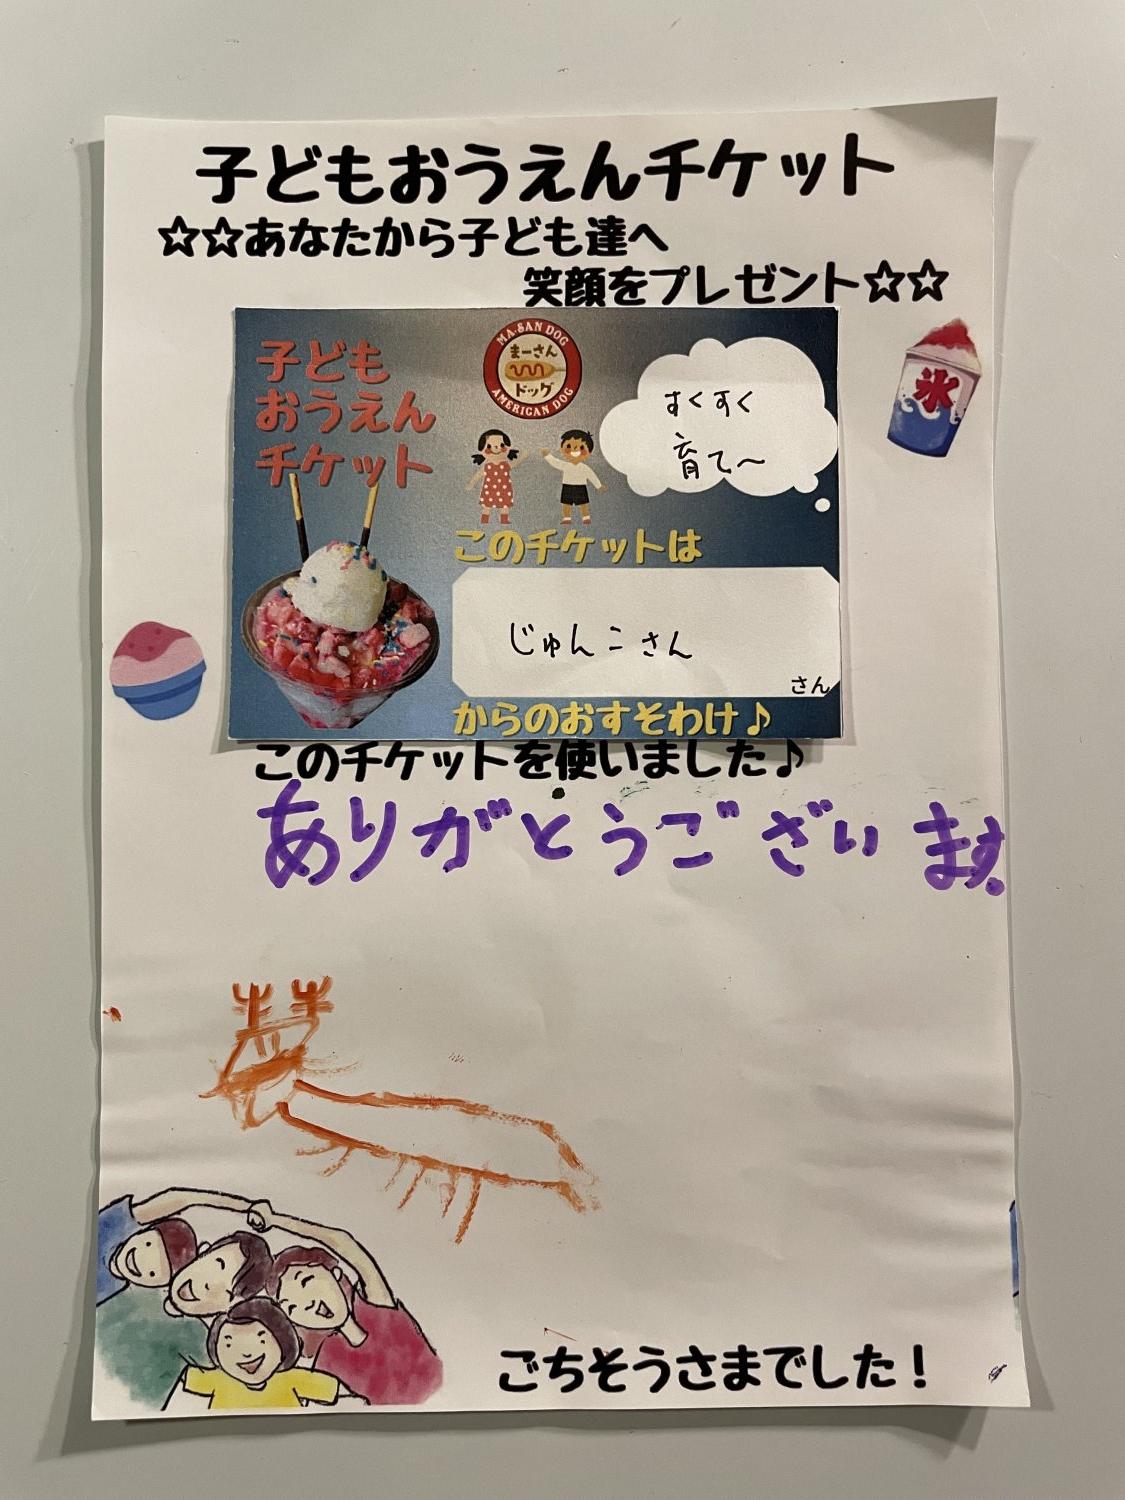 子どもおうえんチケット
☆☆あなたから子ども達へ
笑顔をプレゼント☆☆
子ども
おうえん
チケット
MA-SAN DOG
まーさん
ドッグ
AMERICAN DOG
すくすく
育て〜
氷
このチケットは
じゅんこさん
さん
からのおすそわけ♪
このチケットを使いました♪
ありがとうございます。
ごちそうさまでした！